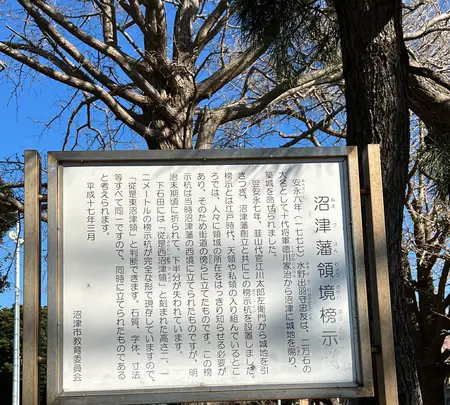 沼津藩領境榜示
ぬまづはんりょうざかいぼうじ
安永六年（一七七七）水野出羽守忠友は、二万石の
大名として十代将軍徳川家治から沼津に城地を賜り、
築城を命ぜられました。
翌安永七年、韮山代官江川太郎左衛門から城地を引
きつぎ、沼津藩創立と共にこの榜示杭を設置しました。
榜示とは江戸時代、天領や私領の入り組んでいるとこ
ろでは、人々に領域の所在をはっきり知らせる必要が
あり、そのため街道の傍らに立てたものです。この榜
示杭は当時沼津藩の西境に立てられたものですが、明
治末期頃に折られて、下半分が失われています。
下石田には、「従是西沼津領」と刻まれた高さ一、一
二メートルの榜示杭が完全な形で現存していますので、
「従是東沼津領」と判断できます。石質、字体、寸法
等すべて同一ですので、同時に立てられたものである
と考えられます。
平成十七年三月
沼津市教育委員会